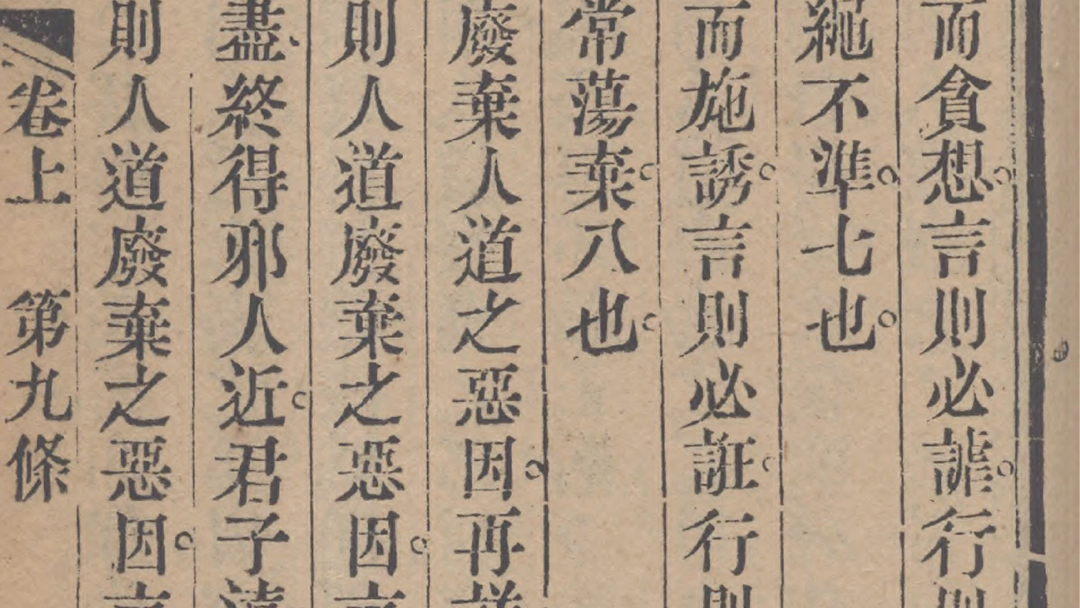 而貪想。言則必誹。行則
繩不準。七也。
而施誘。言則必誑。行則
常蕩棄。八也。
廢棄人道之惡因。再
則人道廢棄之惡因。
盡終得邪人近。君子遠
則人道廢棄之惡因。
卷上 第九條